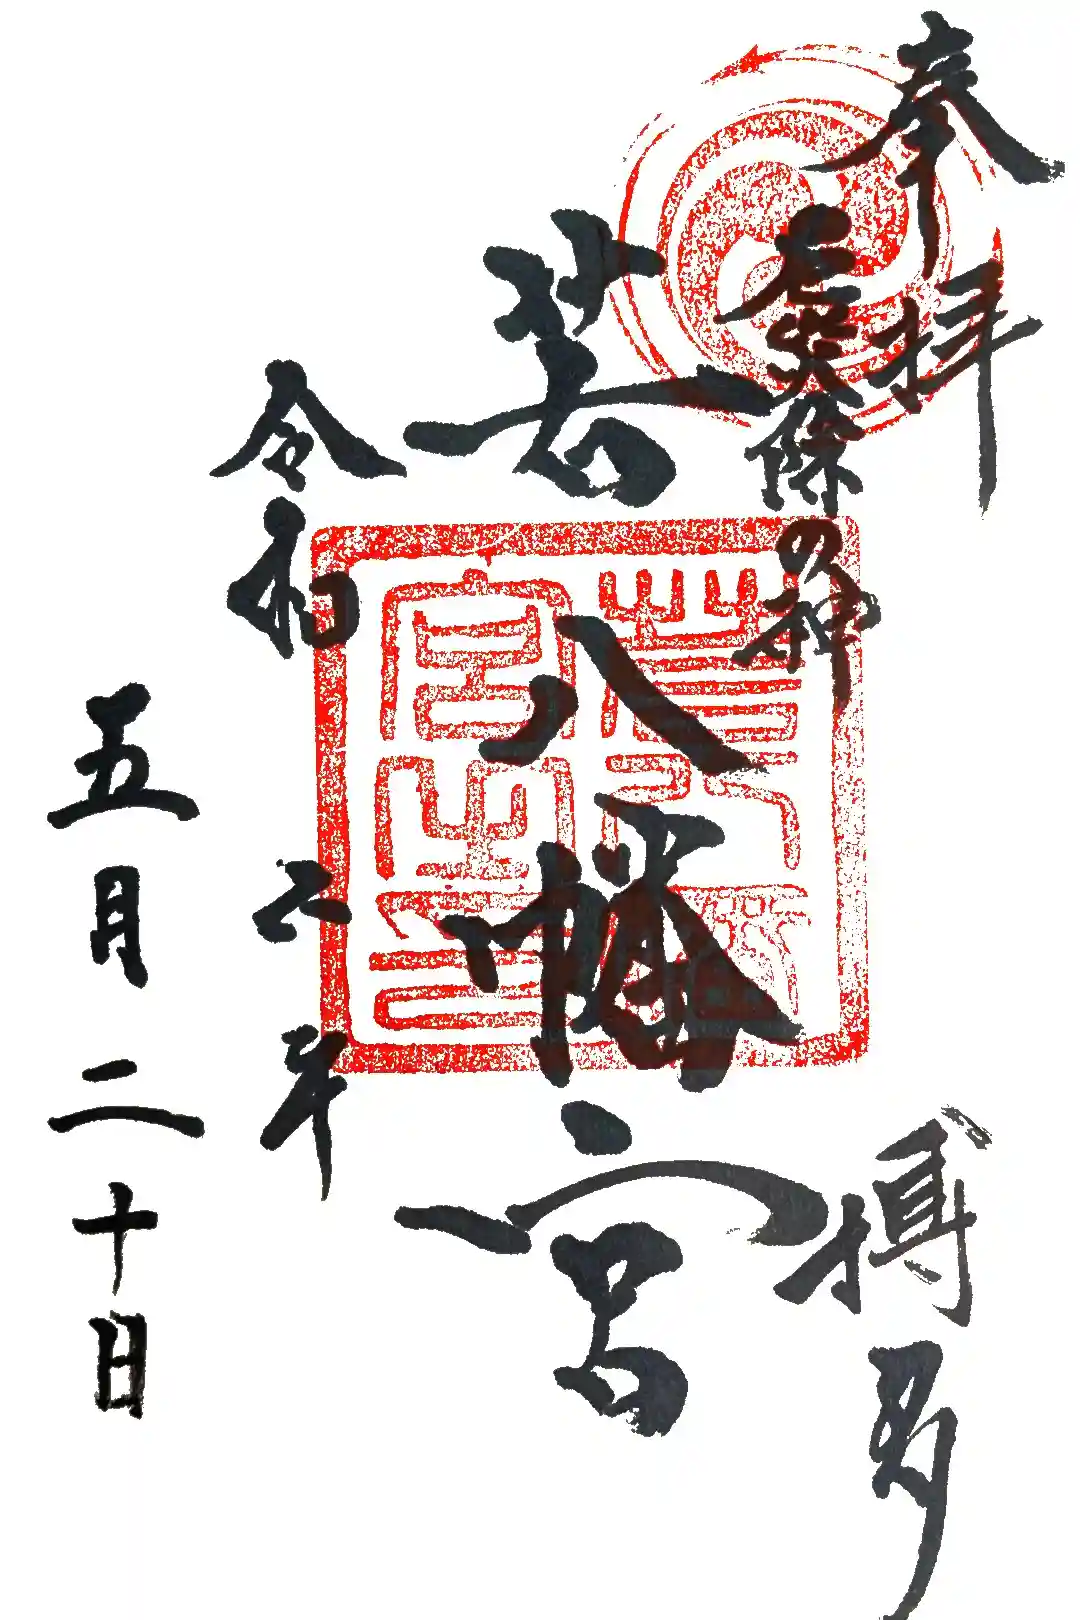 奉拝
博多
厄災除の神
若八幡宮
令和六年
五月二十日
若八幡
宮之印